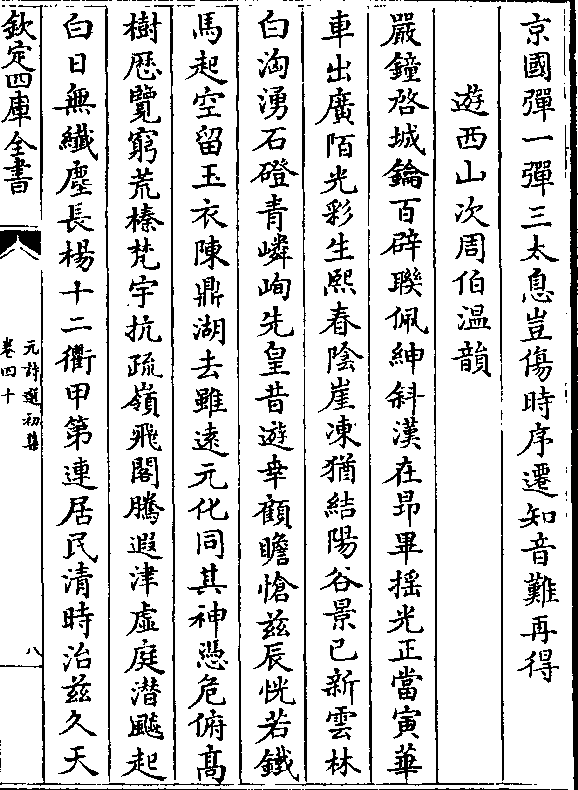 京國彈一彈三太息豈傷時序遷知音難再得
遊西山次周伯温韻
嚴鐘啓城鑰百辟聮佩紳斜漢在昴畢揺光正當寅華
車出廣陌光彩生熙春陰崖凍猶結陽谷景已新雲林
白洶湧石磴青嶙峋先皇昔遊幸顧瞻愴兹辰恍若鐵
馬起空留玉衣陳鼎湖去雖逺元化同其神憑危俯髙
樹歴覽窮荒榛梵宇抗疏嶺飛閣騰遐津虚庭潛飈起
白日無纎塵長楊十二衢甲第連居民清時治兹久天
欽定四庫全書
元詩選初集
卷四十
八